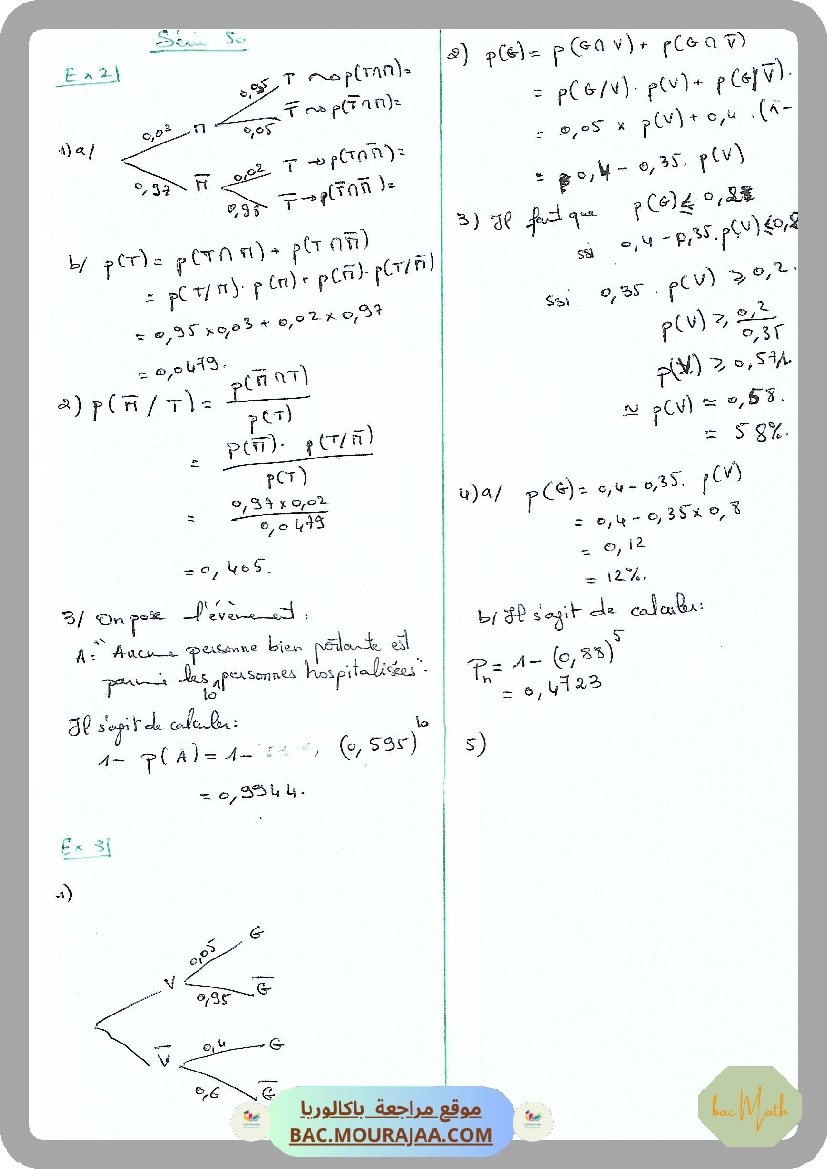 Série 50
Ex 2
1) a/
0,03 M 0,95 T → p(T∩M)=
0,05 T̅ → p(T̅∩M)=
0,97 M̅ 0,02 T → p(T∩M̅)=
0,98 T̅ → p(T̅∩M̅)=
b/ p(T) = p(T∩M) + p(T∩M̅)
= p(T/M). p(M) + p(M̅). p(T/M̅)
= 0,95 x 0,03 + 0,02 x 0,97
= 0,0479.
2) p(M̅/T) = p(M̅∩T) / p(T)
= p(M̅). p(T/M̅) / p(T)
= 0,97 x 0,02 / 0,0479
= 0,405.
3/ On pose l'évènement:
A = "Aucune personne bien portante est
parmi les 10 personnes hospitalisées".
Il s'agit de calculer:
1- p(A) = 1- (0,595)^10
= 0,9944.
Ex 3
1)
V 0,05 G
0,95 G̅
V̅ 0,4 G
0,6 G̅
2) p(G) = p(G∩V) + p(G∩V̅)
= p(G/V). p(V) + p(G/V̅).
= 0,05 x p(V) + 0,4 . (1-
= 0,4 - 0,35. p(V)
3) Il faut que p(G) ≤ 0,2
ssi 0,4 - 0,35. p(V) ≤ 0,2
ssi 0,35 . p(V) ≥ 0,2.
p(V) ≥ 0,2 / 0,35
p(V) ≥ 0,571.
≃ p(V) = 0,58.
= 58%.
4) a/ p(G) = 0,4 - 0,35. p(V)
= 0,4 - 0,35 x 0,8
= 0,12
= 12%.
b/ Il s'agit de calculer:
Pn = 1 - (0,88)^5
= 0,4723
5)
موقع مراجعة باكالوريا
BAC.MOURAJAA.COM
bac Math